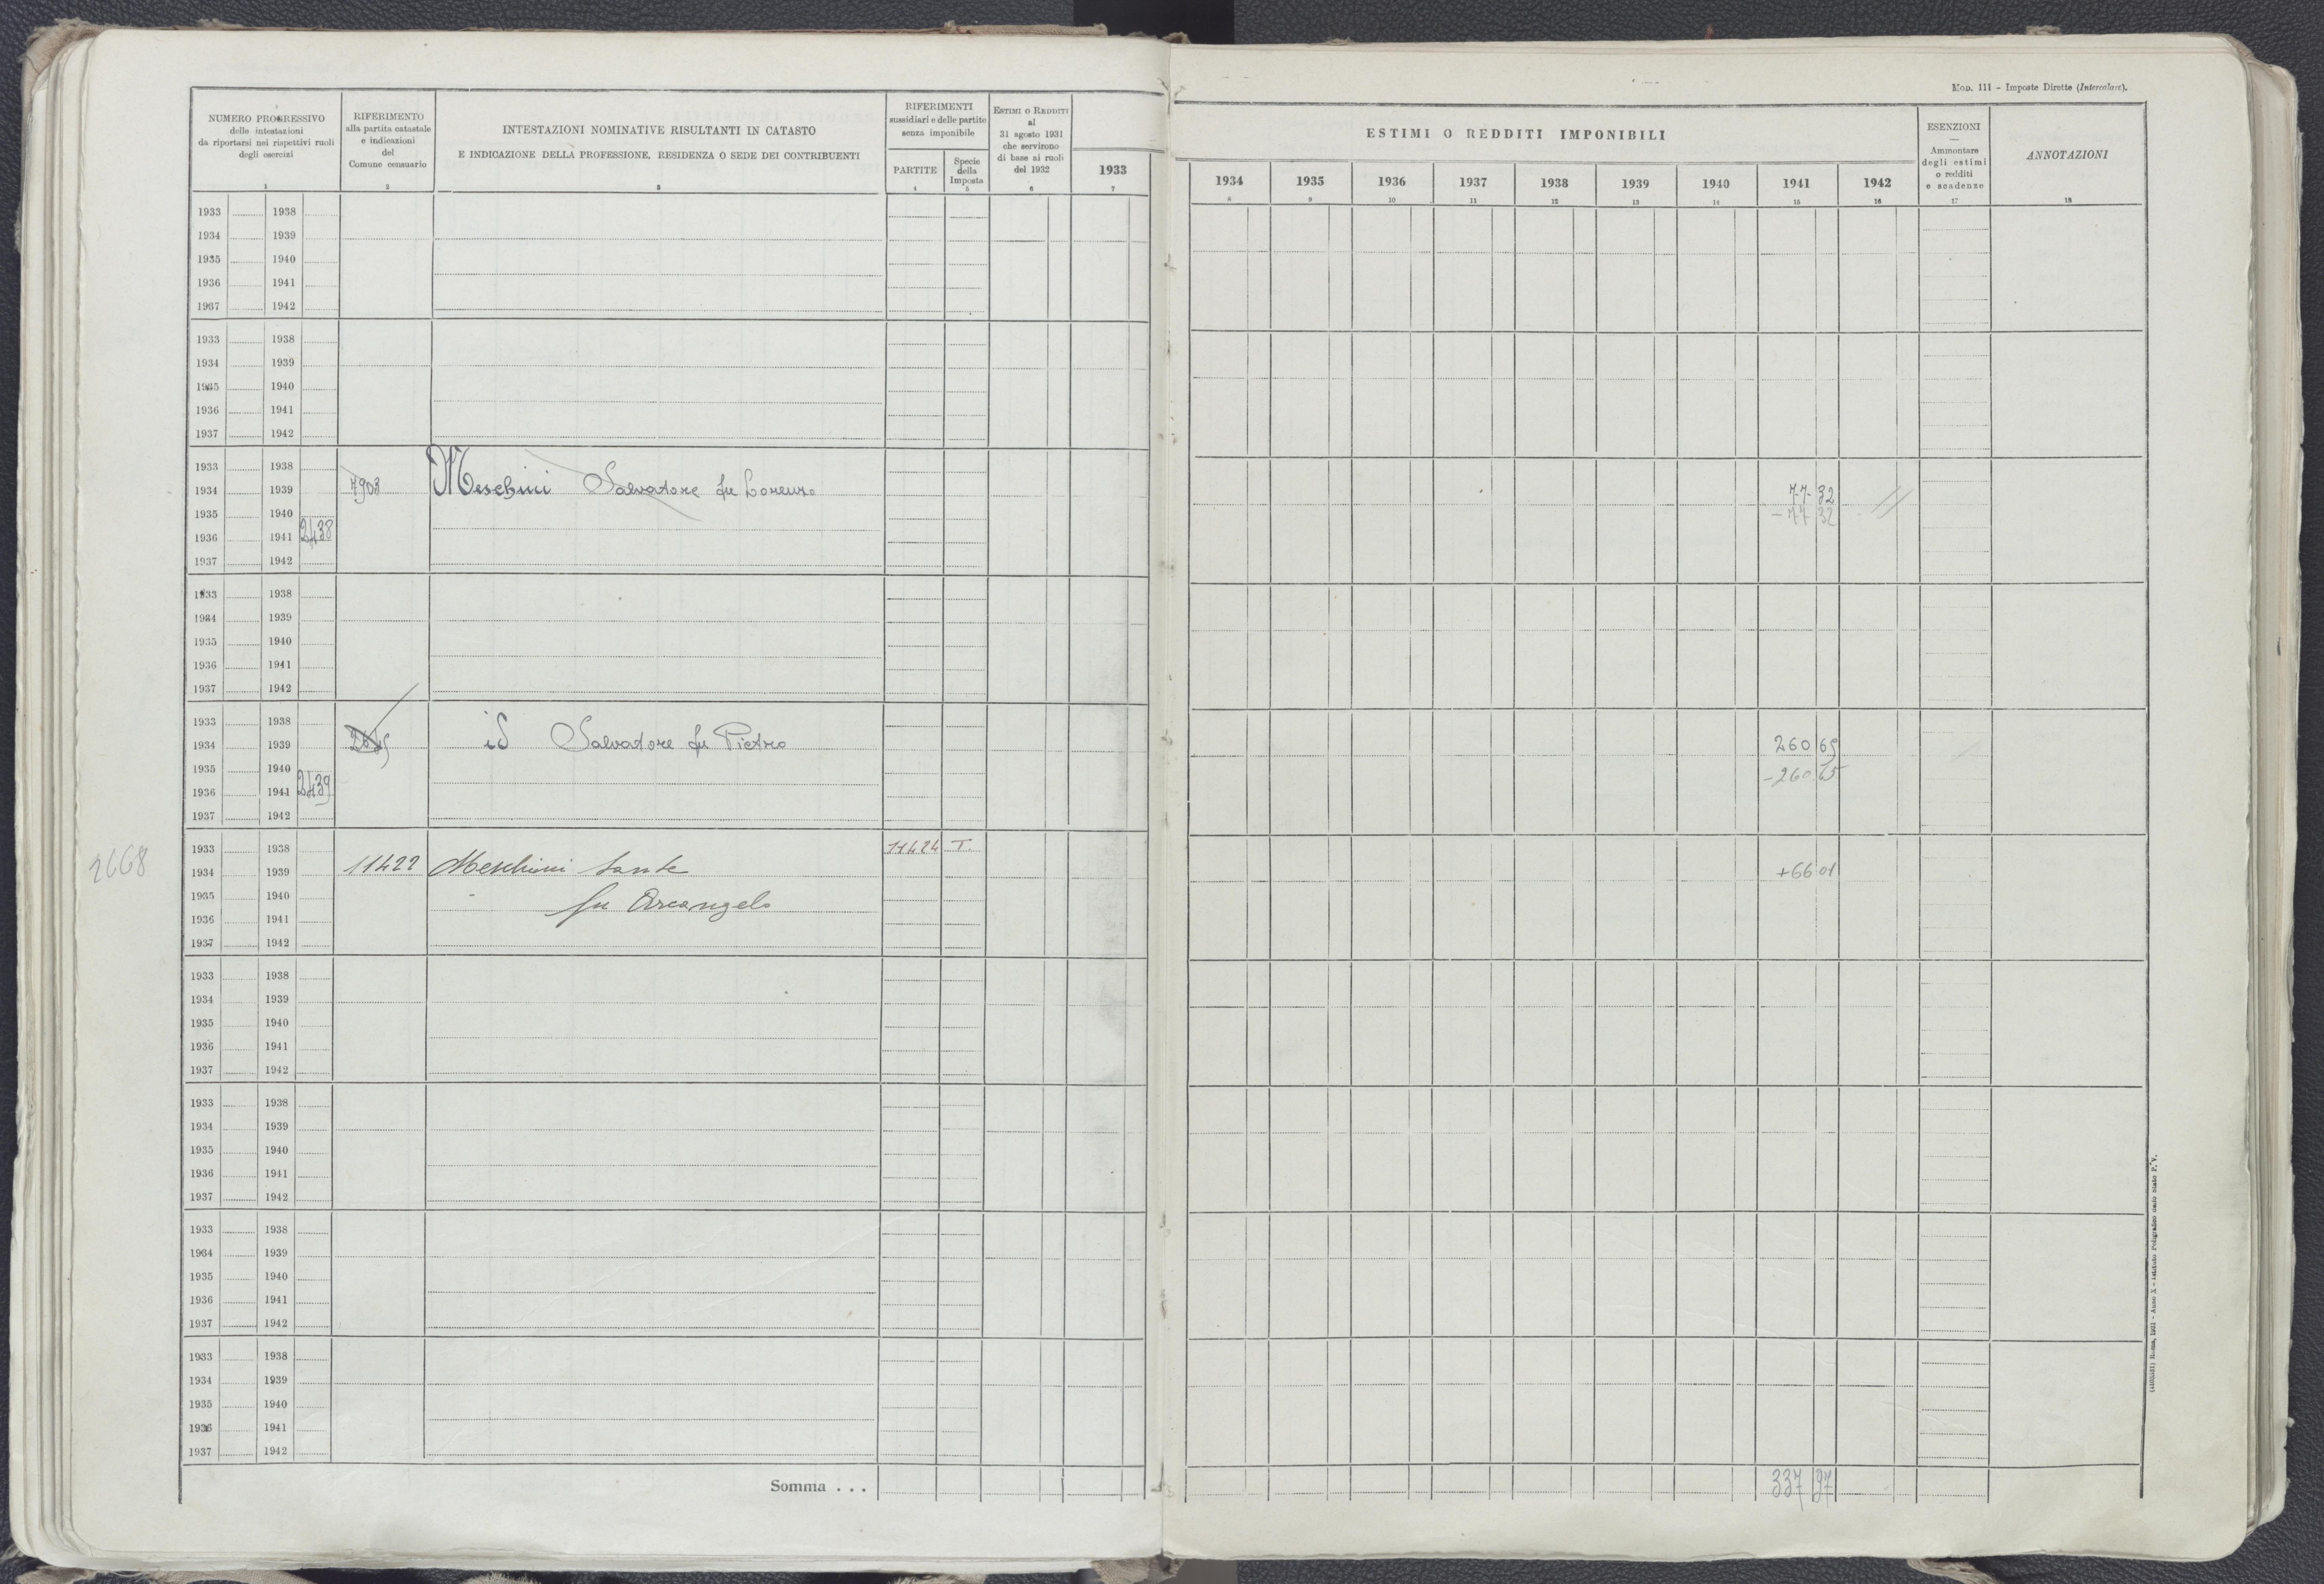 Mod. 111 - Imposte Dirette (Intercalare).
NUMERO PROGRESSIVO
delle intestazioni
da riportarsi nei rispettivi ruoli
degli esercizi
1
RIFERIMENTO
alla partita catastale
e indicazioni
del
Comune censuario
2
INTESTAZIONI NOMINATIVE RISULTANTI IN CATASTO
E INDICAZIONE DELLA PROFESSIONE, RESIDENZA O SEDE DEI CONTRIBUENTI
3
RIFERIMENTI
sussidiari e delle partite
senza imponibile
PARTITE
4
Specie
della
Imposta
5
ESTIMI O REDDITI
al
31 agosto 1931
che servirono
di base ai ruoli
del 1932
6
1933
7
ESTIMI O REDDITI IMPONIBILI
1934 1935 1936 1937 1938 1939 1940 1941 1942
8 9 10 11 12 13 14 15 16
ESENZIONI
Ammontare
degli estimi
o redditi
e scadenze
17
ANNOTAZIONI
18
1933 1938
1934 1939
1935 1940
1936 1941
1937 1942
1933 1938
1934 1939
1935 1940
1936 1941
1937 1942
1933 1938
1934 1939 7903 Meschini Salvatore fu Lorenzo 77 32
1935 1940 - 77 32 //
1936 1941 2438
1937 1942
1933 1938
1934 1939
1935 1940
1936 1941
1937 1942
1933 1938
1934 1939 id Salvatore fu Pietro 260 65
1935 1940 -260 65
1936 1941 2439
1937 1942
1933 1938 11424 T.
2668 1934 1939 11422 Meschini Sante +66 01
1935 1940 fu Arcangelo
1936 1941
1937 1942
1933 1938
1934 1939
1935 1940
1936 1941
1937 1942
1933 1938
1934 1939
1935 1940
1936 1941
1937 1942
1933 1938
1934 1939
1935 1940
1936 1941
1937 1942
1933 1938
1934 1939
1935 1940
1936 1941
1937 1942
Somma . . . 337 97
Roma, 1931 - Anno X - Istituto Poligrafico dello Stato P. V.